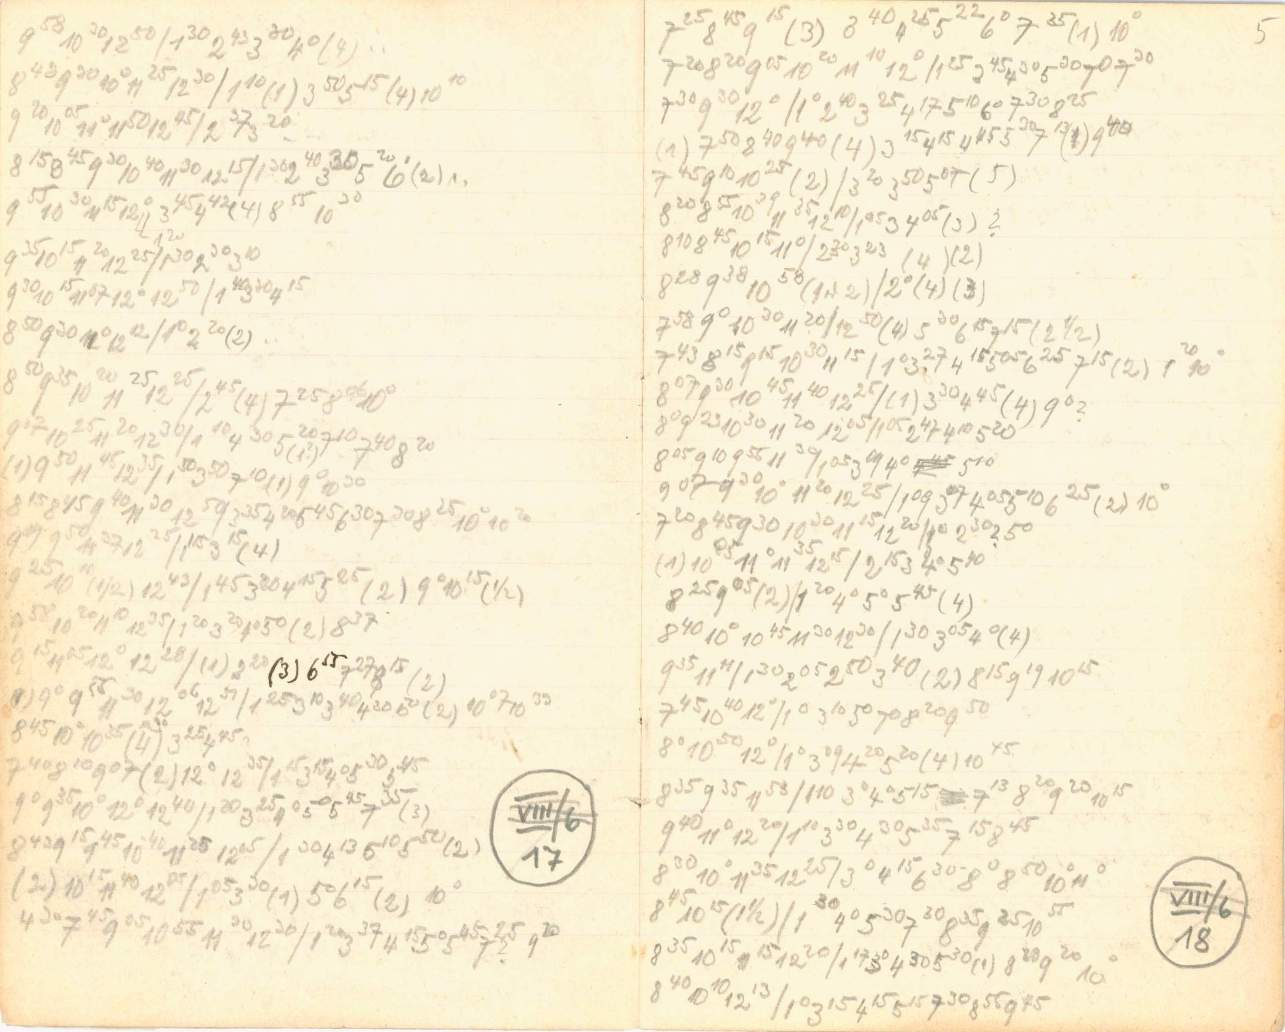 9⁵⁸ 10³⁰ 12⁵⁰ / 1³⁰ 2⁴³ 3³⁰ 4⁰ (4) ..
8⁴³ 9³⁰ 10⁰ 11²⁵ 12³⁰ / 1¹⁰ (1) 3⁵⁰ 5¹⁵ (4) 10¹⁰
9²⁰ 10⁰⁵ 11⁰ 11⁵⁰ 12⁴⁵ / 2³⁷ 3²⁰
8¹⁵ 8⁴⁵ 9³⁰ 10⁴⁰ 11³⁰ 12¹⁵ / 1³⁰ 2⁴⁰ 5²⁰ 6⁰ (2)
9⁵⁵ 10³⁰ 11¹⁵ 12⁰ 3⁴⁵ 4⁴² (4) 8⁵⁵ 10³⁰
9³⁵ 10¹⁵ 11²⁰ 12²⁵ / 1³⁰ 2³⁰ 3¹⁰
9³⁰ 10¹⁵ 11⁰⁷ 12⁰ 12⁵⁰ / 1⁴⁰ 3³⁰ 4¹⁵
8⁵⁰ 9³⁰ 11⁰ 12¹² / 1⁰ 2²⁰ (2) ..
8⁵⁰ 9³⁵ 10²⁰ 11²⁵ 12²⁵ / 2⁴⁵ (4) 7²⁵ 10⁰
9⁰⁷ 10²⁵ 11²⁰ 12³⁰ / 1¹⁰ 4³⁰ 5²⁰ 7¹⁰ 7⁴⁰ 8²⁰
(1) 9⁵⁰ 11⁴⁵ 12³⁵ / 1⁵⁰ 3⁵⁰ 7¹⁰ (1) 9⁰ 10³⁰
8¹⁵ 8⁴⁵ 9⁴⁰ 11³⁰ 12⁵⁹ 3³⁵ 4²⁰ 5⁴⁵ 6³⁰ 7³⁰ 8²⁵ 10⁰ 10²⁰
9⁰⁹ 9⁵⁰ 11³⁷ 12²⁵ / 1¹⁵ 3¹⁵ (4)
9²⁵ 10¹⁰ (1/2) 12⁴³ / 1⁴⁵ 3²⁰ 4¹⁵ 5²⁵ (2) 9⁰ 10¹⁵ (1/2)
9⁵⁸ 10²⁰ 11¹⁰ 12³⁵ / 1²⁰ 3²⁰ 5⁰ (2) 8³⁷
9¹⁵ 11⁰⁵ 12⁰ 12²⁸ / (1) 3²⁰ (3) 6⁵⁵ 7²⁷ 8¹⁵ (2)
9⁰ 9⁵⁵ 11³⁰ 12⁰⁶ 12⁵¹ / 1²⁵ 3¹⁰ 3⁴⁰ 4³⁰ 6²⁰ (2) 10⁰⁷ 10³³
8⁴⁵ 10⁰ 10³⁵ (4) 3²⁵ 4⁴⁵
7⁴⁰ 8¹⁰ 9⁰⁷ (2) 12⁰ 12³⁵ / 1¹⁵ 3¹⁵ 4⁰ 5³⁰
9⁰ 9³⁵ 10⁰ 12⁰ 12⁴⁰ / 1²⁰ 3²⁵ 5⁴⁵ 7³⁵ (3)
8⁴³ 9¹⁵ 9⁴⁵ 10⁴⁰ 11²⁵ 12⁰⁵ / 1³⁰ 4¹³ 5¹⁰ 5⁵⁰ (2)
(2) 10¹⁵ 11⁴⁰ 12⁰⁵ / 1⁰⁵ 3³⁰ (1) 5⁰ 6¹⁵ (2) 10⁰
4³⁰ 7⁴⁵ 9⁰⁵ 10⁵⁵ 11³⁰ 12³⁰ / 1²⁰ 3³⁷ 4¹⁵ 5⁰ 5⁴⁵ 7²⁵ 9²⁰
VIII/6
17
5
7²⁵ 8⁴⁵ 9¹⁵ (3) 3⁴⁰ 4²⁵ 5²² 6⁰ 7³⁵ (1) 10⁰
7²⁰ 8²⁰ 9⁰⁵ 10²⁰ 11¹⁰ 12⁰ / 1²⁵ 3⁴⁵ 4³⁰ 5³⁰ 7⁰ 7³⁰
7³⁰ 9³⁰ 12⁰ / 1⁰ 2⁴⁰ 3²⁵ 4¹⁷ 5¹⁰ 6⁰ 7³⁰ 8²⁵
(1) 7⁵⁰ 8⁴⁰ 9⁴⁰ (4) 3¹⁵ 4¹⁵ 4⁴⁵ 5³⁰ 7¹³ (1) 9⁴⁰
7⁴⁵ 9¹⁰ 10²⁵ (2) / 3²⁰ 3⁵⁰ 5⁰⁷ (5)
8²⁰ 8⁵⁵ 10³⁹ 11³⁵ 12¹⁰ / 1⁰⁵ 3 4⁰⁵ (3) ?
8¹⁰ 8⁴⁵ 10¹⁵ 11⁰ / 2³⁰ 3²³ (4) (2)
8²⁸ 9³⁸ 10⁵⁸ (1+2) / 2⁰ (4) (3)
7⁵⁸ 9⁰ 10³⁰ 11²⁰ / 12⁵⁰ (4) 5³⁰ 6¹⁵ 7¹⁵ (2 1/2)
7⁴³ 8¹⁵ 9¹⁵ 10³⁰ 11¹⁵ / 1⁰ 3²⁷ 4¹⁵ 5⁰⁵ 6²⁵ 7¹⁵ (2) 10⁰
8⁰⁷ 9³⁰ 10⁴⁵ 11⁴⁰ 12²⁵ / (1) 3³⁰ 4⁴⁵ (4) 9⁰ ?
8⁰ 9²³ 10³⁰ 11²⁰ 12⁰⁵ / 1⁰⁵ 2⁴⁷ 4¹⁰ 5²⁰
8⁰⁵ 9¹⁰ 9⁵⁵ 11³⁹ / 1⁰⁵ 3⁰⁹ 4⁰ 5¹⁰
9⁰⁷ 9³⁰ 10⁰ 11²⁰ 12²⁵ / 1⁰⁹ 3⁰⁷ 4⁰⁵ 5¹⁰ 6²⁵ (2) 10⁰
7²⁰ 8⁴⁵ 9³⁰ 10³⁰ 11¹⁵ 12²⁰ / 1⁰ 2³⁰ 2⁵⁰
(1) 10⁰⁵ 11⁰ 11³⁵ 12¹⁵ / 2¹⁵ 3²⁰ 4⁰ 5⁴⁰
8²⁵ 9⁰⁵ (2) / 1²⁰ 4⁰ 5⁰ 5⁴⁵ (4)
8⁴⁰ 10⁰ 10⁴⁵ 11³⁰ 12³⁰ / 1³⁰ 3⁰⁵ 4⁰ (4)
9³⁵ 11¹¹ / 1³⁰ 2⁰⁵ 2⁵⁰ 3⁴⁰ (2) 8¹⁵ 9¹⁹ 10¹⁵
7⁴⁵ 10⁴⁰ 12⁰ / 1⁰ 3¹⁰ 5⁰ 7⁰ 8²⁰ 9⁵⁰
8⁰ 10⁵⁰ 12⁰ / 1⁰ 3⁰⁹ 4²⁰ 5²⁰ (4) 10⁴⁵
8³⁵ 9³⁵ 11⁵³ / 1¹⁰ 3⁰ 4⁰ 5¹⁵ 7¹³ 8²⁰ 9²⁰ 10¹⁵
9⁴⁰ 11⁰ 12²⁰ / 1¹⁰ 3³⁰ 4³⁰ 5³⁵ 7¹⁵ 8⁴⁵
8³⁰ 10⁰ 11³⁵ 12²⁵ / 3⁰ 4¹⁵ 6³⁰ 8⁰ 8⁵⁰ 10⁰ 11⁰
8⁴⁵ 10²⁵ (1 1/2) / 1³⁰ 4⁰ 5³⁰ 7²⁰ 8³⁵ 9³⁵ 10⁵⁵
8³⁵ 10¹⁵ 11¹⁵ 12²⁰ / 1¹⁷ 3³⁰ 4³⁰ 5³⁰ (1) 8²⁰ 9²⁰ 10⁰
8⁴⁰ 10¹⁰ 12¹³ / 1⁰ 3¹⁵ 4¹⁵ 5¹⁵ 7³⁰ 8⁵⁵ 9⁴⁵
VIII/6
18